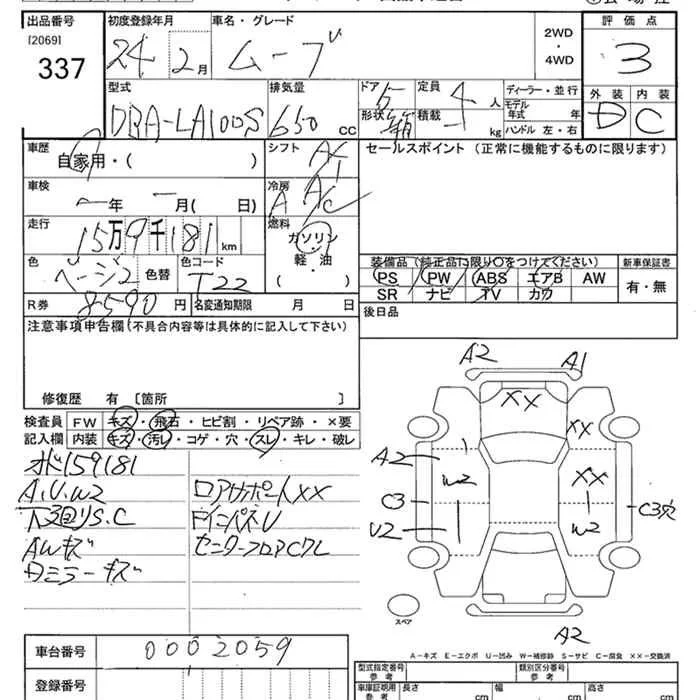 出品番号 初度登録年月 車名・グレード 評価点
[2069] 337 24年 2月 ムーブ 2WD ・ 4WD 3
型式 排気量 ドア 5 定員 4 人 ディーラー・並行 外装 内装
DBA-LA100S 650 cc 形状 箱 積載 kg モデル年式 年 D C
ハンドル 左・右
車歴 シフト AT セールスポイント (正常に機能するものに限ります)
自家用・( )
車検 冷房 A A/C
年 月( 日)
走行 燃料
15万9千181 km ガソリン
軽・油
( )
色 ベージュ 色替 色コード T22
装備品(純正品に限り○をつけてください) 新車保証書
PS PW ABS エアB AW 有・無
SR ナビ TV カワ
R券 8590 円 名変通知期限 月 日
後日品
注意事項申告欄(不具合内容等は具体的に記入して下さい)
修復歴 有 [箇所 ]
検査員 FW キズ・飛石・ヒビ割・リペア跡・×要
記入欄 内装 キズ・汚レ・コゲ・穴・スレ・キレ・破レ
159181
A.U.W2 ロアサポートXX
下回りS.C
AWキズ センターフロアC
ミラーキズ
A2 A1
XX
XX
A2 W2 XX
C3 C3穴
U2 W2
スペア
A2
A-キズ E-エクボ U-凹み W-補修跡 S-サビ C-腐食 ××-交換済
車台番号 0002059
型式指定番号 参考 類別区分番号 参考
登録番号
車庫証明用 参考 長さ cm 幅 cm 高さ cm